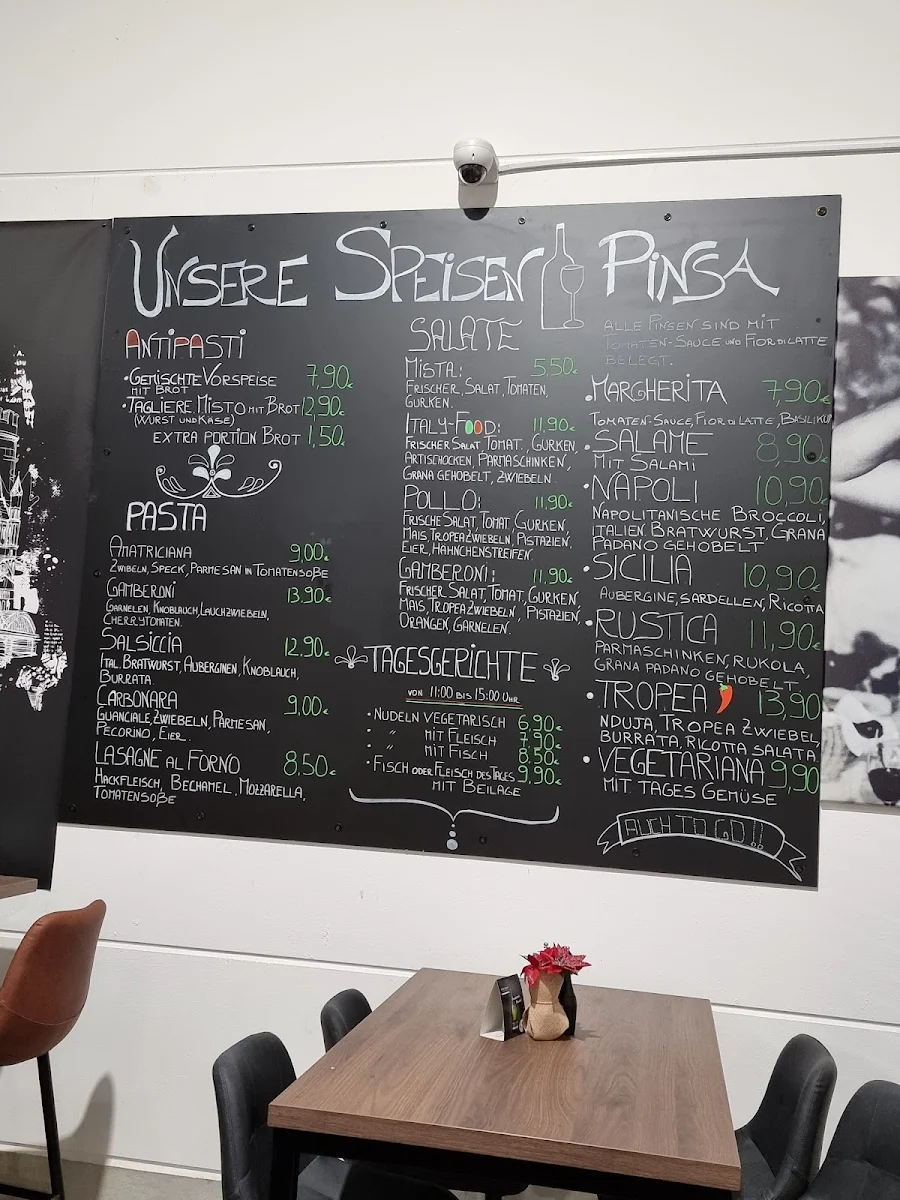 UNSERE SPEISEN
ANTIPASTI
·GEMISCHTE VORSPEISE 7,90€
MIT BROT
·TAGLIERE MISTO MIT BROT 12,90€
(WURST UND KÄSE)
EXTRA PORTION BROT 1,50€
PASTA
AMATRICIANA 9,00€
ZWIBELN, SPECK, PARMESAN IN TOMATENSOßE
GAMBERONI 13.90€
GARNELEN, KNOBLAUCH, LAUCHZWIEBELN,
CHERRYTOMATEN.
SALSICCIA 12.90€
ITAL. BRATWURST, AUBERGINEN, KNOBLAUCH,
BURRATA.
CARBONARA 9,00€
GUANCIALE, ZWIEBELN, PARMESAN,
PECORINO, EIER.
LASAGNE AL FORNO 8,50€
HACKFLEISCH, BECHAMEL, MOZZARELLA,
TOMATENSOßE
SALATE
MISTA: 5,50€
FRISCHER, SALAT, TOMATEN,
GURKEN.
ITALY-FOOD: 11,90€
FRISCHER SALAT, TOMAT., GURKEN,
ARTISCHOCKEN, PARMASCHINKEN,
GRANA GEHOBELT, ZWIEBELN.
POLLO: 11,90€
FRISCHE SALAT, TOMAT, GURKEN,
MAIS, TROPEA ZWIEBELN, PISTAZIEN,
EIER, HÄHNCHENSTREIFEN.
GAMBERONI: 11,90€
FRISCHER SALAT, TOMAT, GURKEN,
MAIS, TROPEA ZWIEBELN, PISTAZIEN,
ORANGEN, GARNELEN.
TAGESGERICHTE
VON 11:00 BIS 15:00 UHR
· NUDELN VEGETARISCH 6,90€
· " MIT FLEISCH 7,90€
· " MIT FISCH 8,50€
· FISCH ODER FLEISCH DES TAGES 9,90€
MIT BEILAGE
PINSA
ALLE PINSEN SIND MIT
TOMATEN-SAUCE UND FIOR DI LATTE
BELEGT.
·MARGHERITA 7,90€
TOMATEN-SAUCE, FIOR DI LATTE, BASILIKU
·SALAME 8,90€
MIT SALAMI
·NAPOLI 10,90€
NAPOLITANISCHE BROCCOLI,
ITALIEN. BRATWURST, GRANA
PADANO GEHOBELT
·SICILIA 10,90€
AUBERGINE, SARDELLEN, RICOTTA
·RUSTICA 11,90€
PARMASCHINKEN, RUKOLA,
GRANA PADANO GEHOBELT
·TROPEA 13,90
NDUJA, TROPEA ZWIEBEL,
BURRATA, RICOTTA SALATA,
·VEGETARIANA 9,90
MIT TAGES GEMÜSE
AUCH TO GO!!